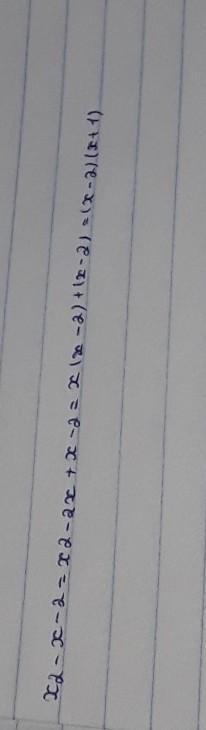 x2 - x - 2 = x2 - 2x + x - 2 = x (x - 2) + (x - 2) = (x - 2).(x + 1)